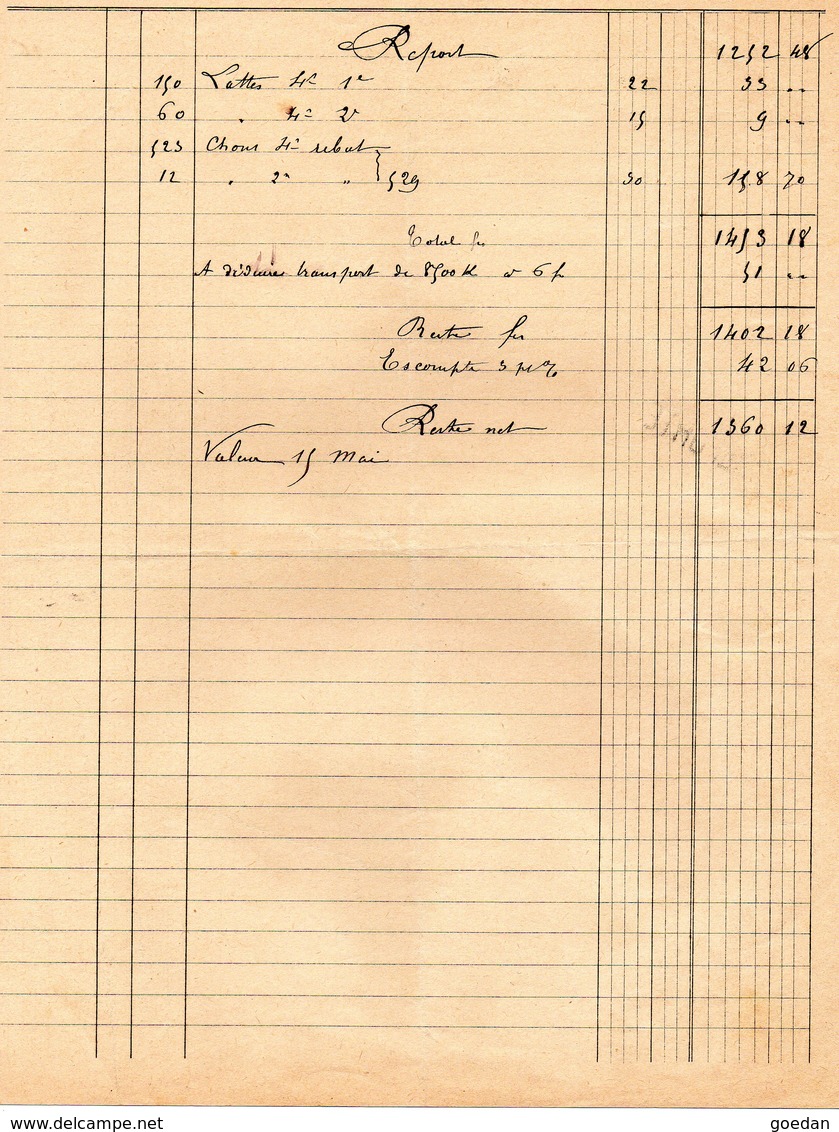 Report 1252 48
150 Lattes 4m 1e 22 33 "
60 " 4m 2e 15 9 "
523 Chons 4m rebut
12 " 2m " } 529 30 158 70
Total frs 1453 18
A déduire transport de 8500 K à 6 f 51 "
Reste frs 1402 18
Escompte 3 p% 42 06
Reste net 1360 12
Valeur 15 Mai
www.delcampe.net goedan